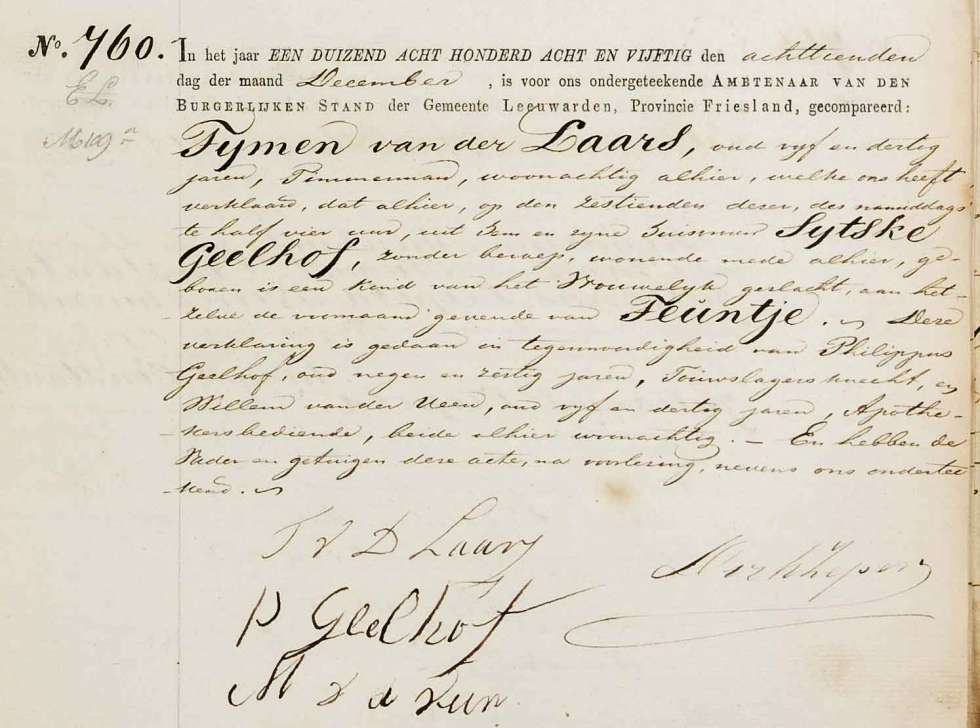 No. 760.
In het jaar EEN DUIZEND ACHT HONDERD ACHT EN VIJFTIG den achttienden
dag der maand December , is voor ons ondergeteekende AMBTENAAR VAN DEN
BURGERLIJKEN STAND der Gemeente Leeuwarden, Provincie Friesland, gecompareerd:
E L.
Tymen van der Laars, oud vyf en dertig
jaren, Timmerman, woonachtig alhier, welke ons heeft
verklaard, dat alhier, op den zestienden dezer, des namiddags
te half vier uur, uit hem en zyne huisvrouw Sytske
Geelhof, zonder beroep, wonende mede alhier, ge-
boren is een kind van het Vrouwelyk geslacht, aan het-
-zelve de voornaam gevende van Feuntje. Deze
verklaring is gedaan in tegenwoordigheid van Philippus
Geelhof, oud negen en zestig jaren, Touwslagersknecht, en
Willem van der Veen, oud vyf en dertig jaren, Apothe-
-kersbediende, beide alhier woonachtig. — En hebben de
Vader en getuigen deze acte, na voorlezing, nevens ons ondertee-
-kend.
T v D Laars
P Geelhof
v d Veen